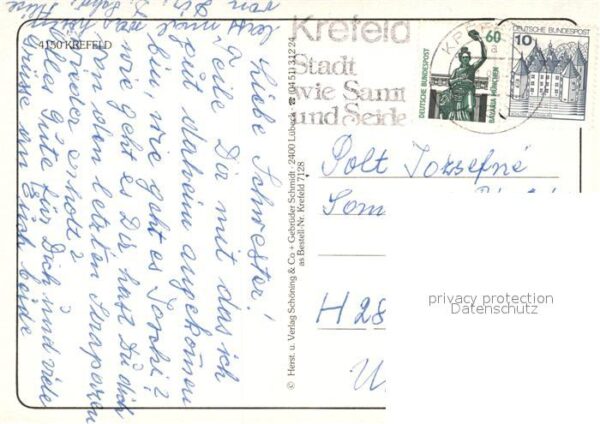 4150 KREFELD
Liebe Schwester!
Teile Dir mit das ich
gut daheim angekommen
bin, wie geht es Joschi?
wie geht es Dir, hast Du dich
von den letzten Strapazen
wieder erholt?
Alles Gute für Dich und viele
Grüsse an Euch beide
von Dir
© Herst. u. Verlag Schöning & Co + Gebrüder Schmidt · 2400 Lübeck · ☎ (0451) 31224
as Bestell-Nr. Krefeld 7128
Krefeld
Stadt
wie Samt
und Seide
DEUTSCHE BUNDESPOST
60
BAVARIA MÜNCHEN
DEUTSCHE BUNDESPOST
10
Polt Jozsefné
Som
H 28
privacy protection
Datenschutz